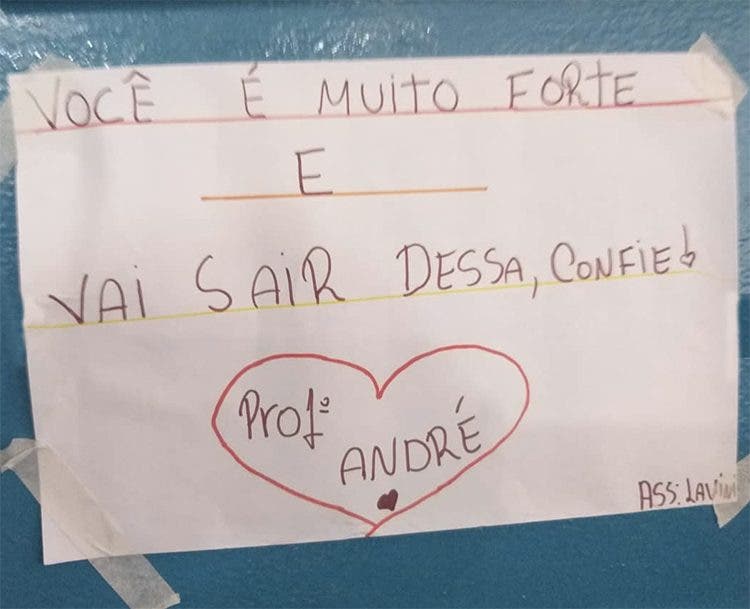 VOCÊ É MUITO FORTE
E
VAI SAIR DESSA, CONFIE!
Profº
ANDRÉ
ASS: LAVIN